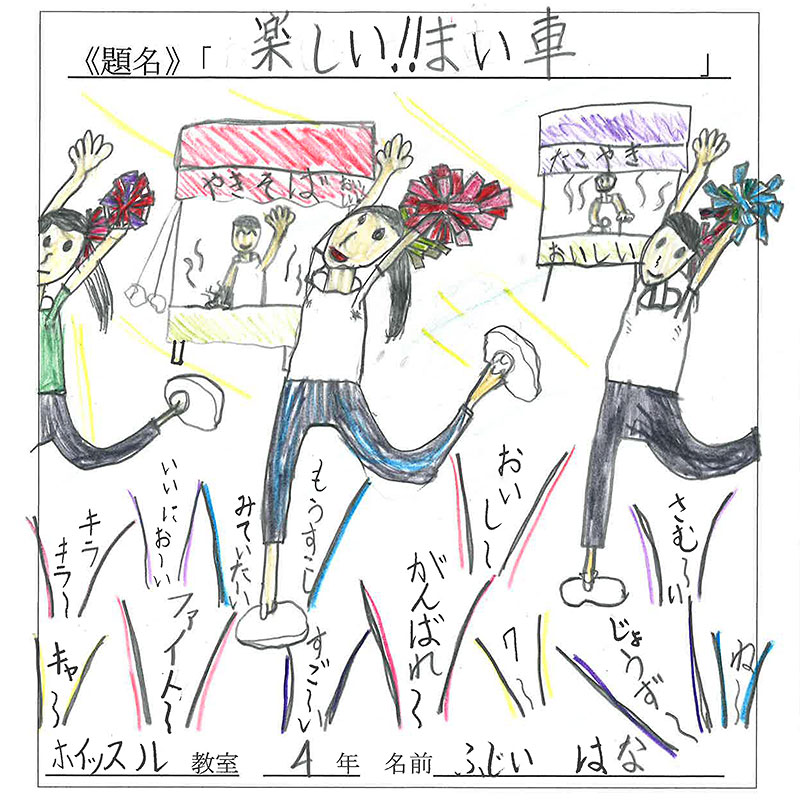 《題名》「楽しい!!まい車」
やきそば
おいしい
たこやき
おいしい
おいし〜
さむ〜い
もうすこし
みていたい
いいにお〜い
キラキラ〜
がんばれ〜
ファイト〜
じょうず〜
ワ〜
すご〜い
キャ〜
ね〜
ホイッスル 教室 4 年 名前 ふじい はな